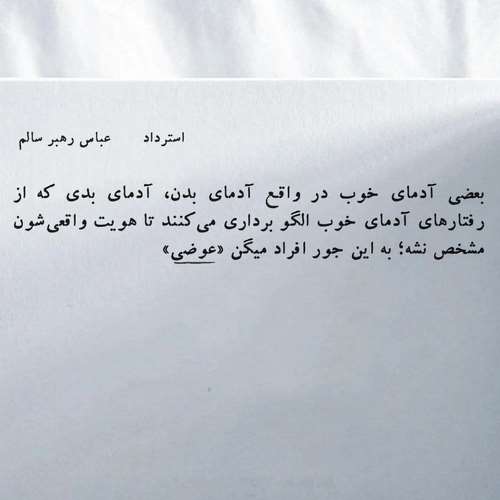 استرداد عباس رهبر سالم
بعضی آدمای خوب در واقع آدمای بدن، آدمای بدی که از
رفتارهای آدمای خوب الگو برداری می‌کنند تا هویت واقعی‌شون
مشخص نشه؛ به این جور افراد میگن «عوضی»